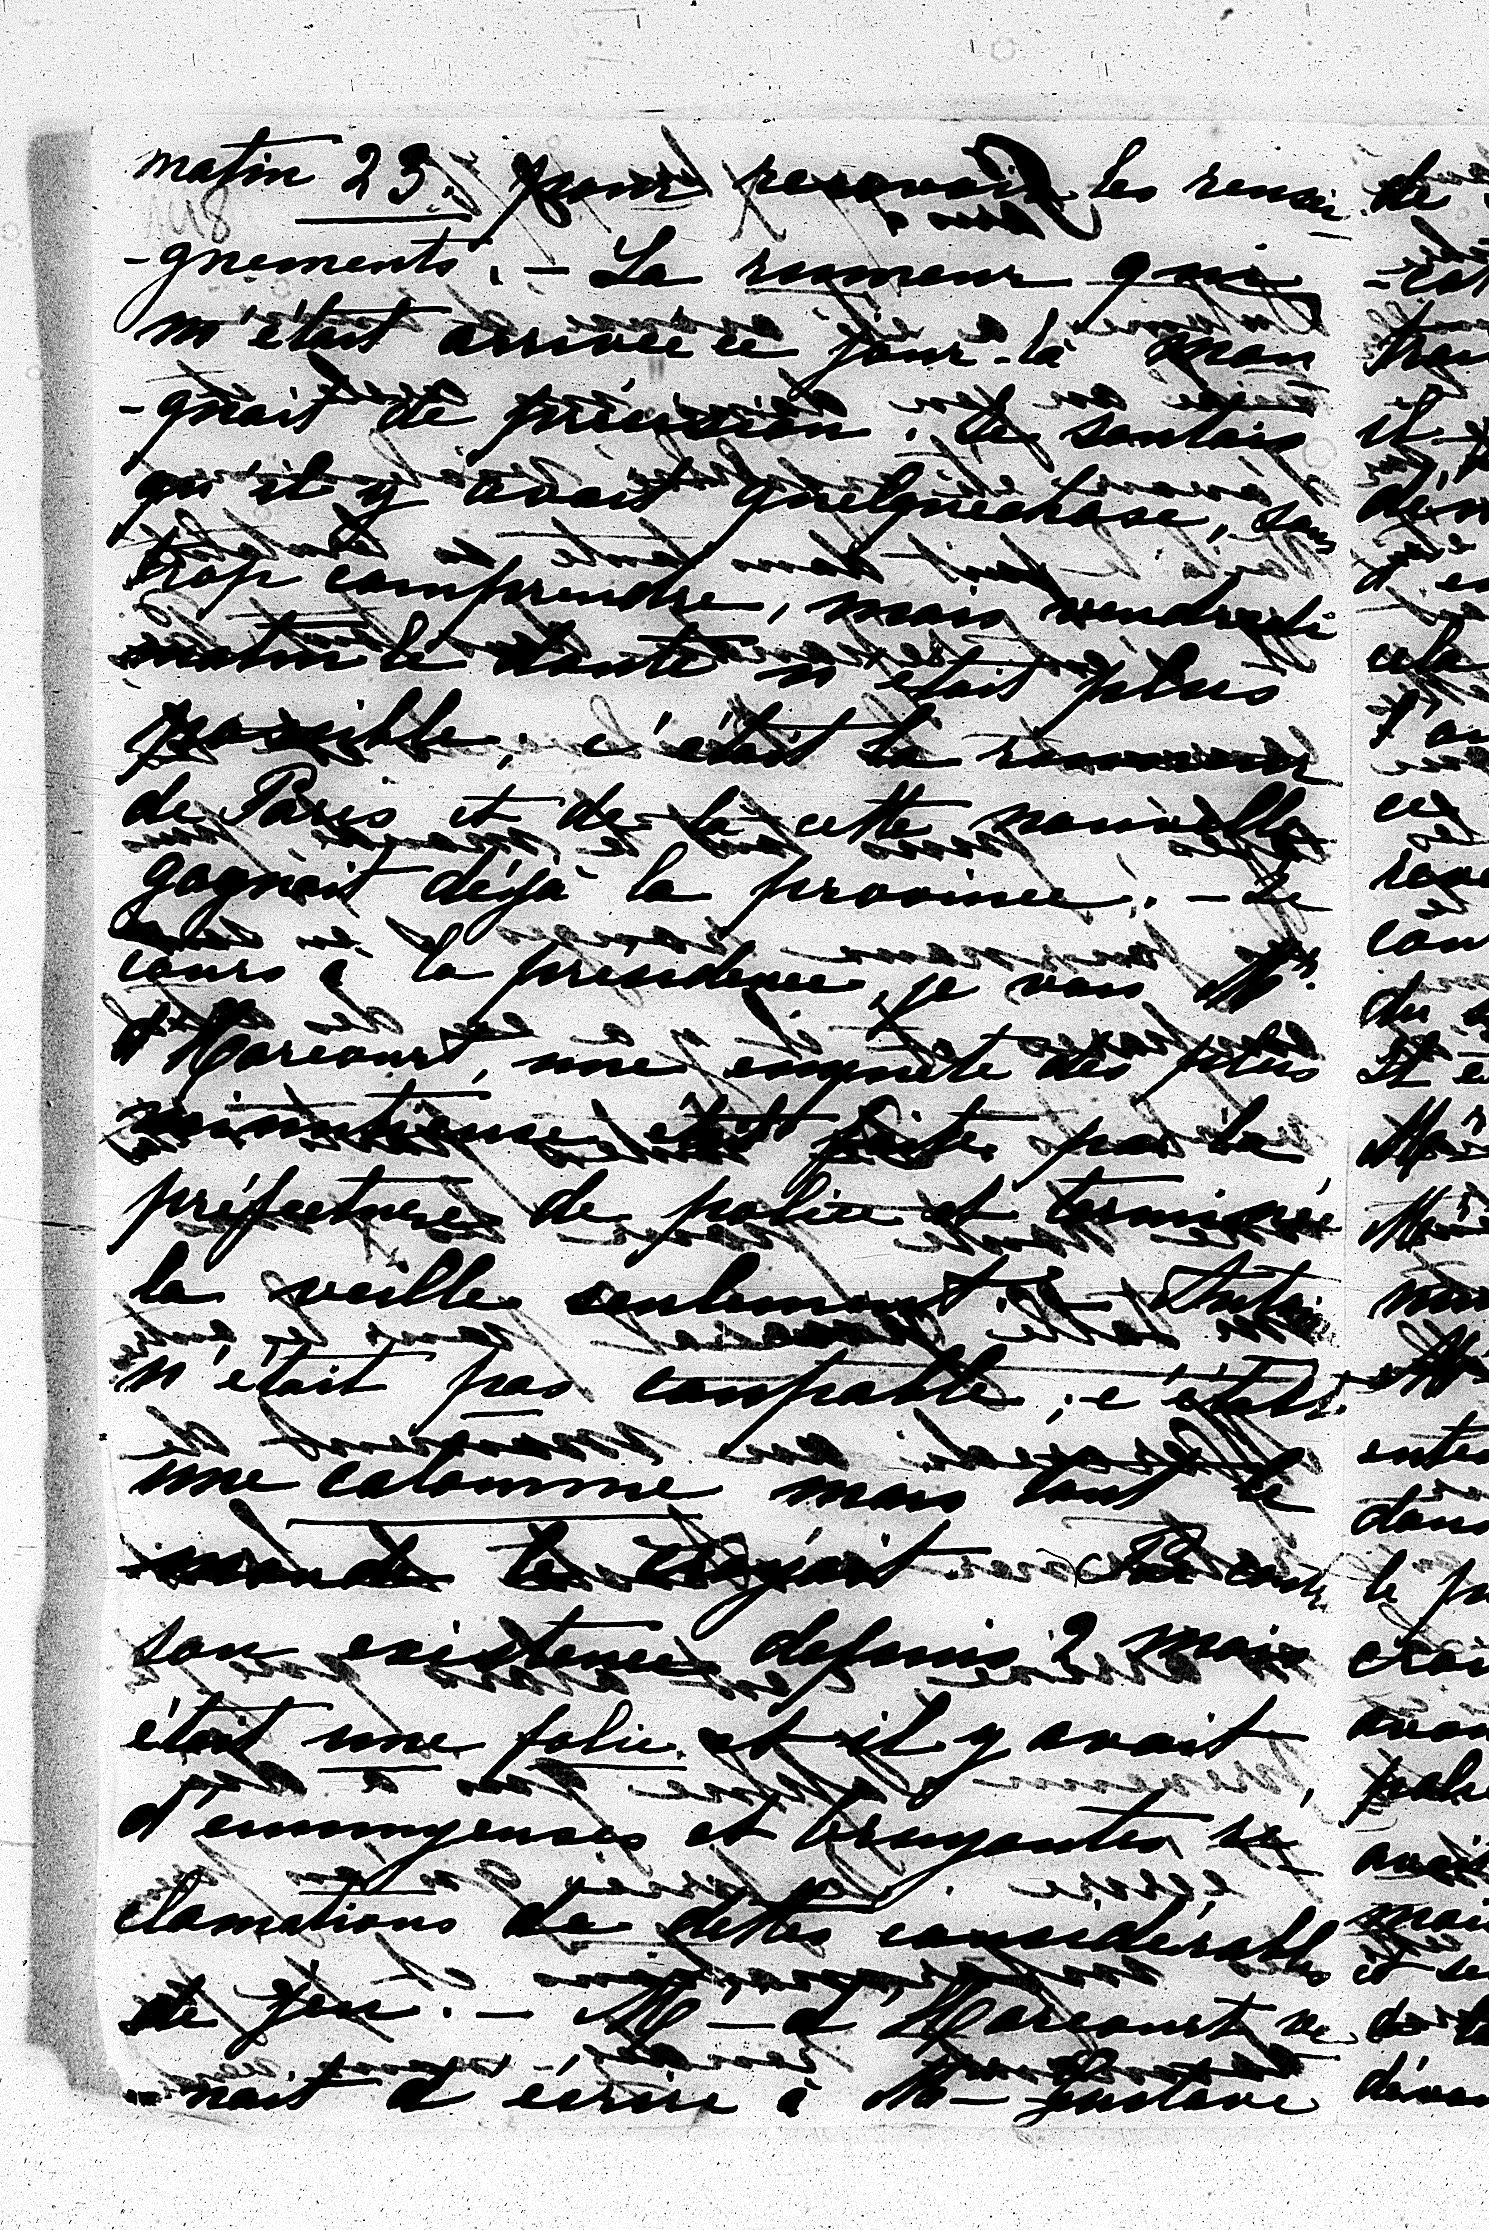 matin 23. pour recevoir les rensei-
148
-gnements. — La rumeur qui
m'était arrivée ce jour-là man
-quait de précision. Je sentais
qu'il y avait quelquechose, sans
trop comprendre, mais vendredi
matin le doute n'était plus
possible; c'était la rumeur
de Paris et de là cette nouvelle
gagnait déjà la province. — Je
cours à la présidence, je vois Mr.
d'Harcourt, une enquête des plus
minutieuse était faite par la
préfecture de police et terminée
la veille seulement. Antoine
n'était pas coupable; c'était
une calomnie mais tout le
monde le croyait. Par contre
son existence depuis 2 mois
était une folie et il y avait
d'ennuyeuses et bruyantes ré-
clamations de dettes considérables
de jeu. — M — d'Harcourt ve
-nait d'écrire à M — Gustave
de
il
cela
l'au
cet
cou
du
entes
dans
le
croi
avai
avait
mais
et se
de la
devan